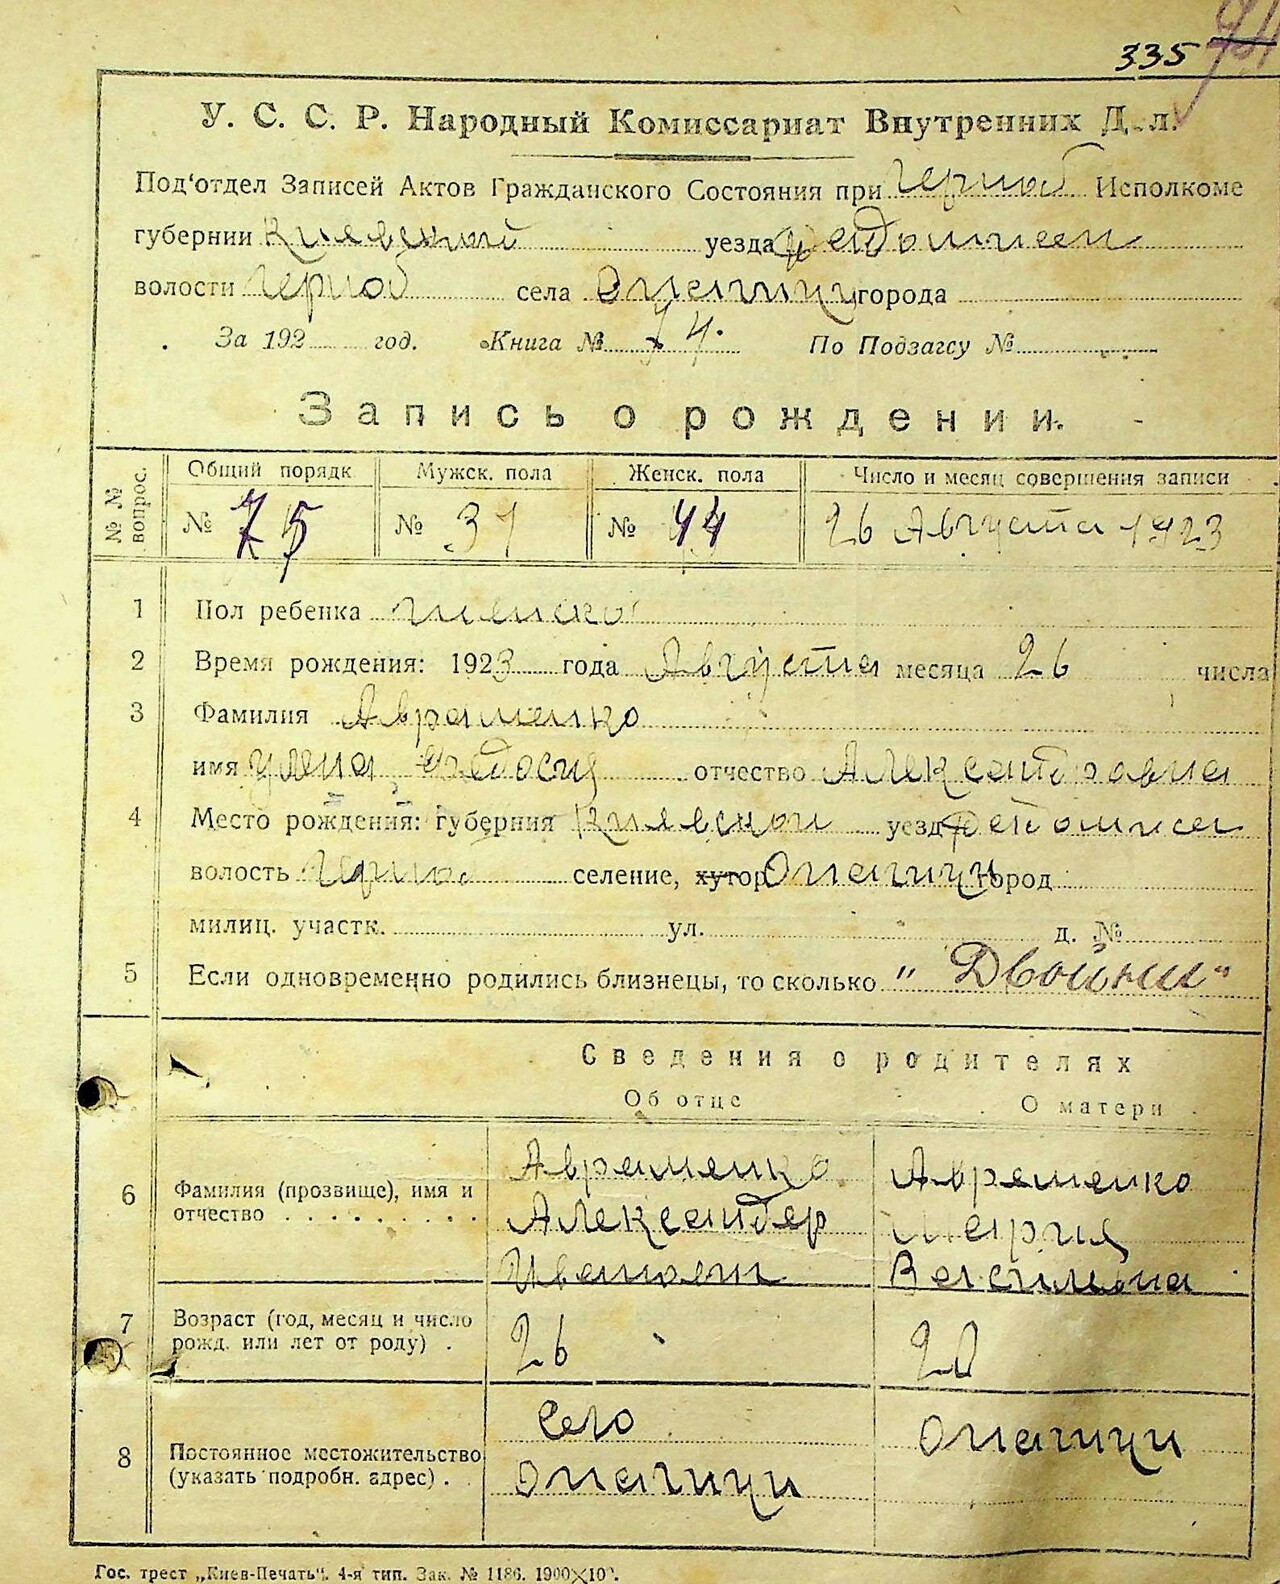 335
У. С. С. Р. Народный Комиссариат Внутренних Дел.
Под'отдел Записей Актов Гражданского Состояния при Черноб Исполкоме
губернии Киевской уезда
волости Черноб села Опачичи города
За 192 год. Книга № По Подзагсу №
Запись о рождении.
№ № вопрос. Общий порядк Мужск. пола Женск. пола Число и месяц совершения записи
№ 75 № 31 № 44 26 Августа 1923
1 Пол ребенка женско
2 Время рождения: 1923 года Августа месяца 26 числа
3 Фамилия Авраменко
имя Уляна Федосия отчество Александравна
4 Место рождения: губерния Киевской уезд
волость Черноб селение, хутор Опачичи город
милиц. участк. ул. д. №
5 Если одновременно родились близнецы, то сколько "Двойни"
Сведения о родителях
Об отце О матери
6 Фамилия (прозвище), имя и отчество Авраменко Александер Иванович Авраменко Мария Васильвна
7 Возраст (год, месяц и число рожд. или лет от роду) . 26 20
8 Постоянное местожительство (указать подробн. адрес) . Село Опачичи Опачичи
Гос. трест „Киев-Печать“. 4-я тип. Зак. № 1186. 1900×10